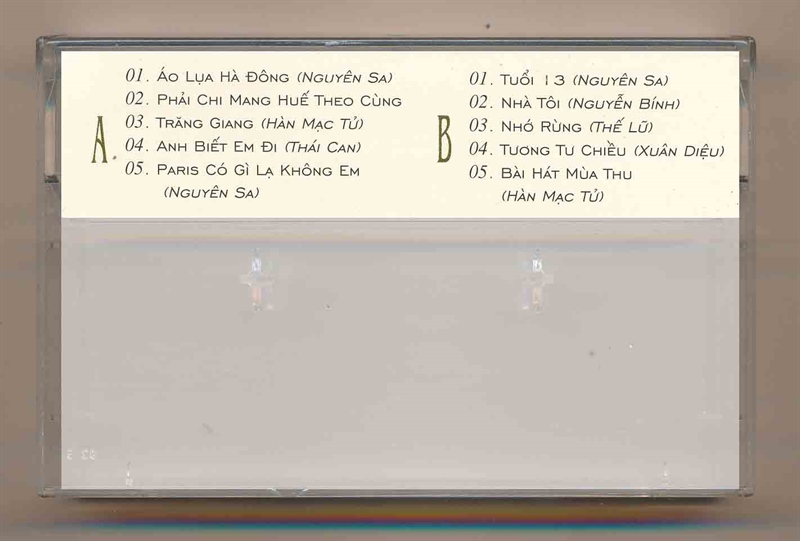 A.
01. Áo Lụa Hà Đông (Nguyên Sa)
02. Phải Chi Mang Huế Theo Cùng
03. Trăng Giang (Hàn Mạc Tử)
04. Anh Biết Em Đi (Thái Can)
05. Paris Có Gì Lạ Không Em
(Nguyên Sa)
B
01. Tuổi 13 (Nguyên Sa)
02. Nhà Tôi (Nguyễn Bính)
03. Nhó Rừng (Thế Lữ)
04. Tương Tư Chiều (Xuân Diệu)
05. Bài Hát Mùa Thu
(Hàn Mạc Tử)